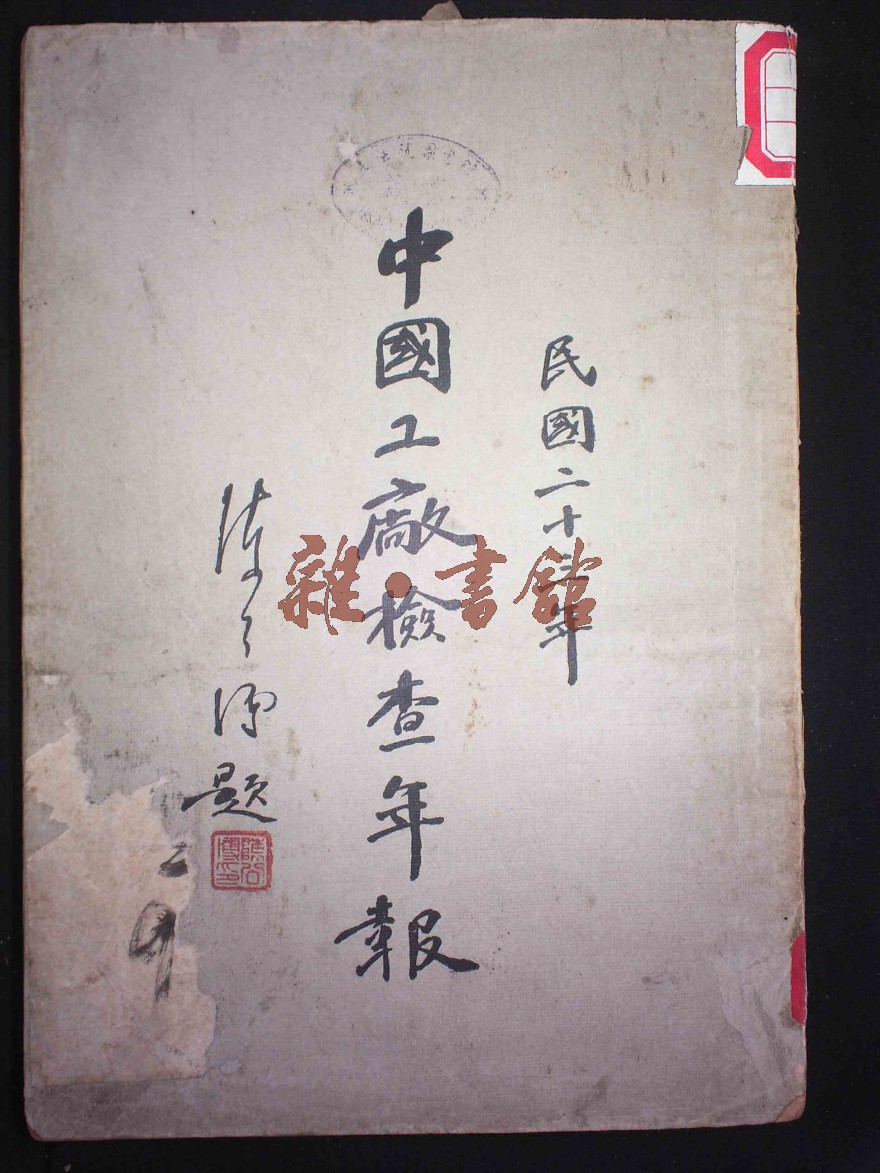 民國二十三年
中國工廠檢查年報
陳公博題
陳公博印
雜·書館